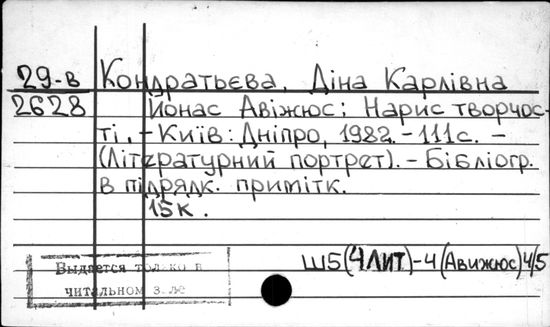 29-в Кондратьєва, Діна Карлівна
2628 Йонас Авіжюс: Нарис творчос-
ті. - Київ: Дніпро, 1982. - 111 с. -
(Літературний портрет). - Бібліогр.
в підрядк. примітк.
15 к.
Ш5(4ЛИТ)-4(Авижюс)4/5
Выдается только в
читальном зале